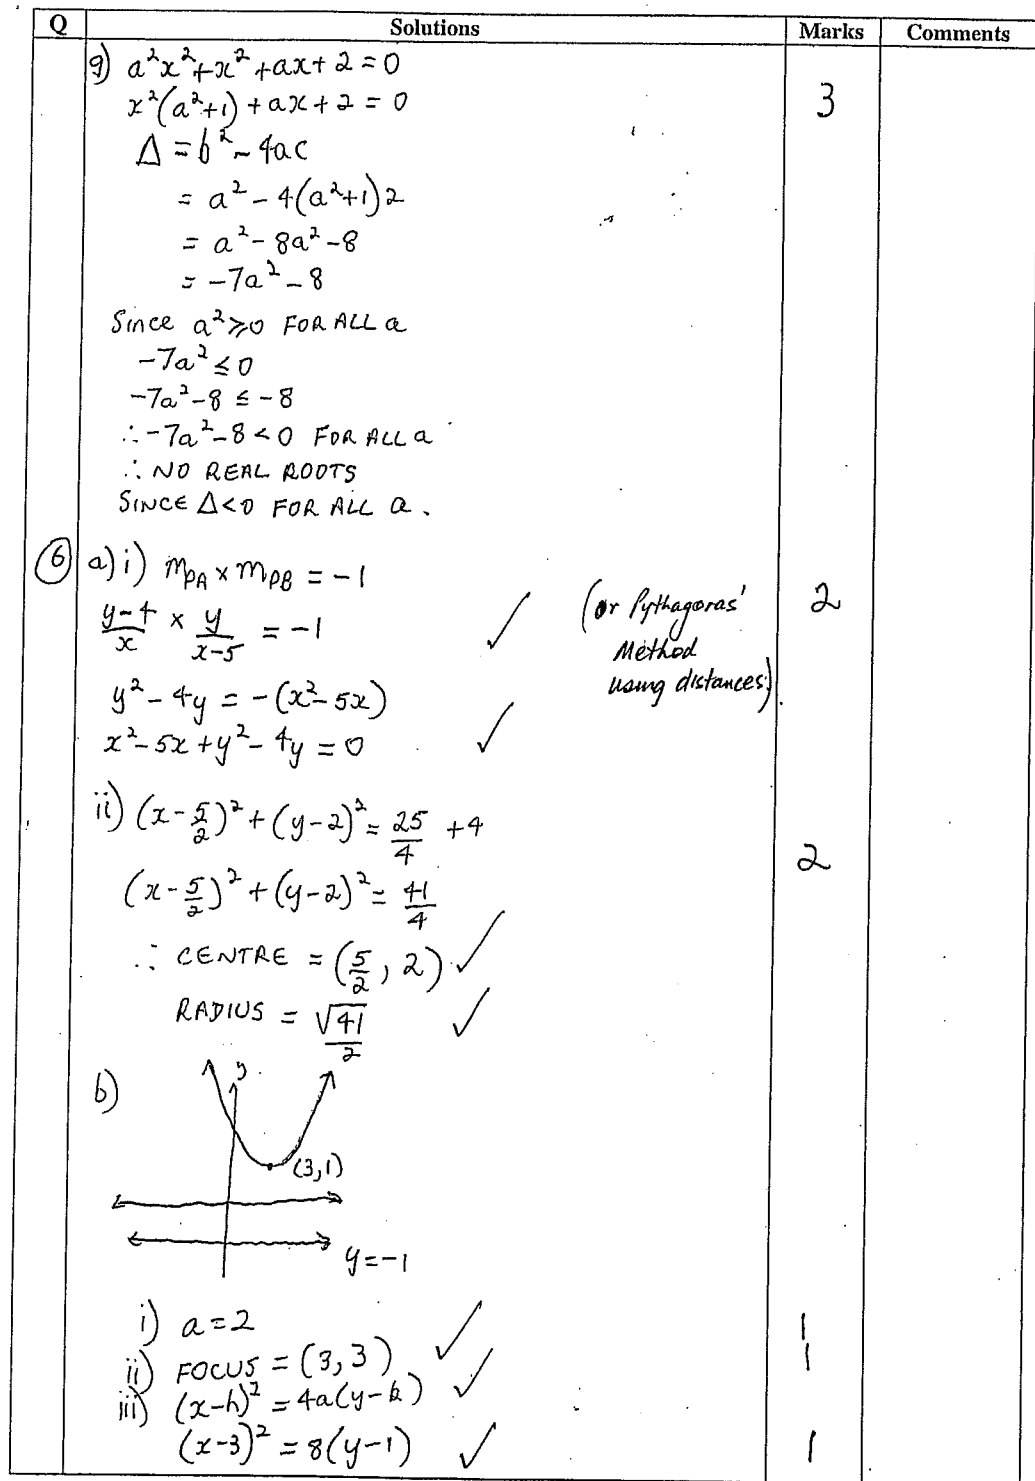 Q Solutions Marks Comments
g) a²x²+x²+ax+2=0 3
x²(a²+1)+ax+2=0
Δ=b²-4ac
= a²-4(a²+1)2
= a²-8a²-8
= -7a²-8
Since a²≥0 FOR ALL a
-7a²≤0
-7a²-8≤-8
∴-7a²-8<0 FOR ALL a
∴ NO REAL ROOTS
SINCE Δ<0 FOR ALL a.
6 a) i) m_PA × m_PB = -1 2
(y-4)/x × y/(x-5) = -1 ✓ (or Pythagoras'
Method
using distances)
y²-4y = -(x²-5x)
x²-5x+y²-4y=0 ✓
ii) (x-5/2)²+(y-2)²=25/4+4 2
(x-5/2)²+(y-2)²=41/4
∴ CENTRE = (5/2, 2) ✓
RADIUS = √41/2 ✓
b) y
(3,1)
y=-1
i) a=2 ✓ 1
ii) FOCUS = (3,3) ✓ 1
iii) (x-h)²=4a(y-k)
(x-3)²=8(y-1) ✓ 1